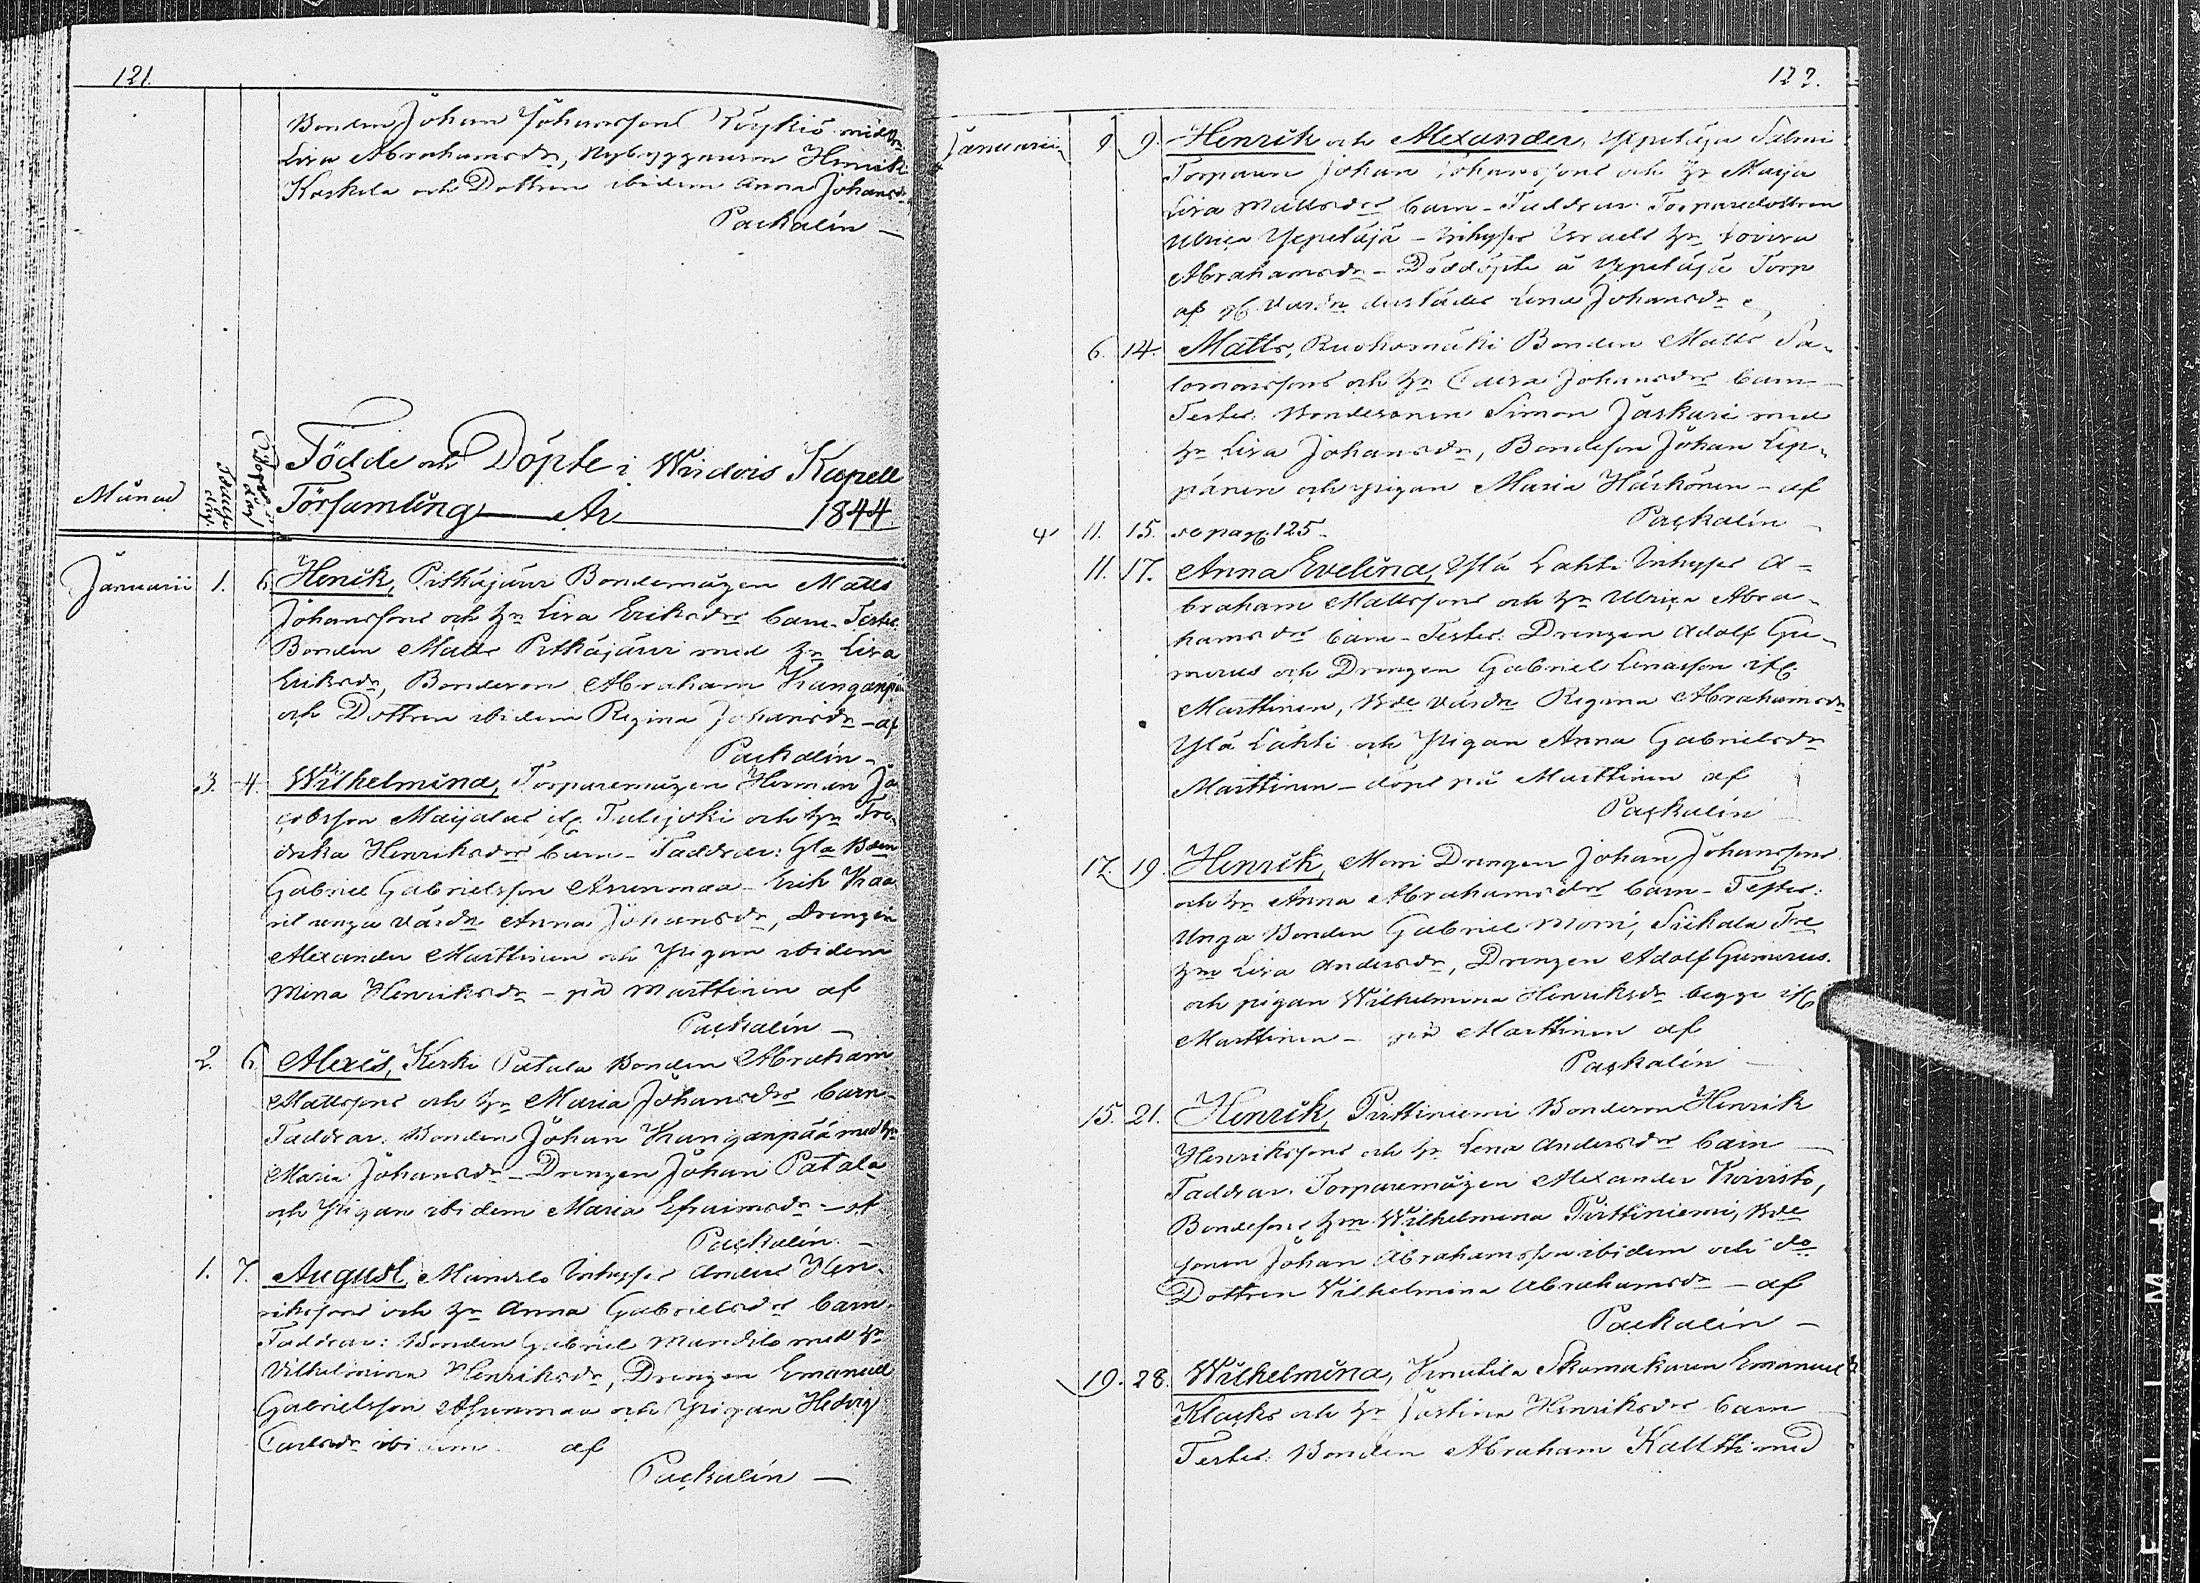 121.
Bonden Johan Johansson Köykiö med hr
Lisa Abrahamsdr, Nybyggaren Henrik
Koskela och Dottren ibidem Anna Johansdr
Paskalin —
Månad
Födelse dag
Döpelse dag
Födde och Döpte i Windois Kapell
Församling År 1844
Januarii 1. 6. Henrik, Pitkäjärvi Bondemågen Matts
Johanssons och hr Lisa Eriksdrs barn. Testes
Bonden Matts Pitkäjärvi med hr Lisa
Eriksdr, Bondeson Abraham Kanganpää
och Dottren ibidem Regina Johansdr – af
Paskalin –
3. 4. Wilhelmina, Torparemågen Herman Ja-
cobsson Maijalas ifr Talijoki och hr Fre-
drika Henriksdrs barn – Faddrar: Gla Bden
Gabriel Gabrielsson Assunmaa – Erik Kaa
unga värdn Anna Johansdr, Drengen
Alexander Marttinen och Pigan ibidem
Mina Henriksdr – på Marttinen af
Paskalin —
2. 6. Alexis, Kerki Patala Bonden Abraham
Mattssons och hr Maria Johansdrs barn –
Faddrar: Bonden Johan Kanganpää med hr
Maria Johansdr – Drengen Johan Patala
och Pigan ibidem Maria Efraimsdr – af
Paskalin —
1. 7. August, Mandilo Inhyses Anders Hen-
rikssons och hr Anna Gabrielsdrs barn –
Faddrar: Bonden Gabriel Mandilo med hr
Vilhelmina Henriksdr, Drengen Emanuel
Gabrielsson Assunmaa och Pigan Hedvig
Carlsdr ibidem af
Paskalin —
122.
Januarii 9 9. Henrik och Alexander, Yxpetäjä Salmi
Torparen Johan Johanssons och hr Maija
Lisa Mattsdrs barn – Faddrar Torparedottren
Ulrica Yxpetäjä – Inhyses Israels hr Lovisa
Abrahamsdr – Döddöpte å Yxpetäjä Torp
af gl. Värdn derstädes Lena Johansdr
6. 14. Matts, Ruohomäki Bonden Matts Sa-
lomonssons och hr Caisa Johansdrs barn –
Testes: Bondesonen Simon Jaskari med
hr Lisa Johansdr, Bondeson Johan Lep-
pänen och pigan Maria Härkönen – af
Paskalin –
11. 15. se pag. 125.
11. 17. Anna Evelina, Ylä Lahti Inhyses A-
braham Mattssons och hr Ulrica Abra-
hamsdrs barn – Testes: Drengen Adolf Gu-
merus och Drengen Gabriel Enasson ifr
Marttinen, Bde värdn Regina Abrahamsdr
Ylä Lahti och Pigan Anna Gabrielsdr
Marttinen – döpt på Marttinen af
Paskalin
17. 19. Henrik, Morri Drengen Johan Johanssons
och hr Anna Abrahamsdrs barn – Testes:
Unga Bonden Gabriel Morri, Siikala Tre
hrn Lisa Andersdr, Drengen Adolf Gumerus
och pigan Wilhelmina Henriksdr begge ifr
Marttinen – på Marttinen af
Paskalin —
15. 21. Henrik, Pirttiniemi Bondeson Henrik
Henrikssons och hr Lena Andersdrs barn –
Faddrar: Torparemågen Alexander Koivisto,
Bondesons hrn Wilhelmina Pirttiniemi, Bde
sonen Johan Abrahamsson ibidem och do
Dottren Vilhelmina Abrahamsdr – af
Paskalin —
19. 28. Wilhelmina, Knutila Skomakaren Emanuel
Klacks och hr Justina Henriksdrs barn –
Testes: Bonden Abraham Kaltti med
FILMT